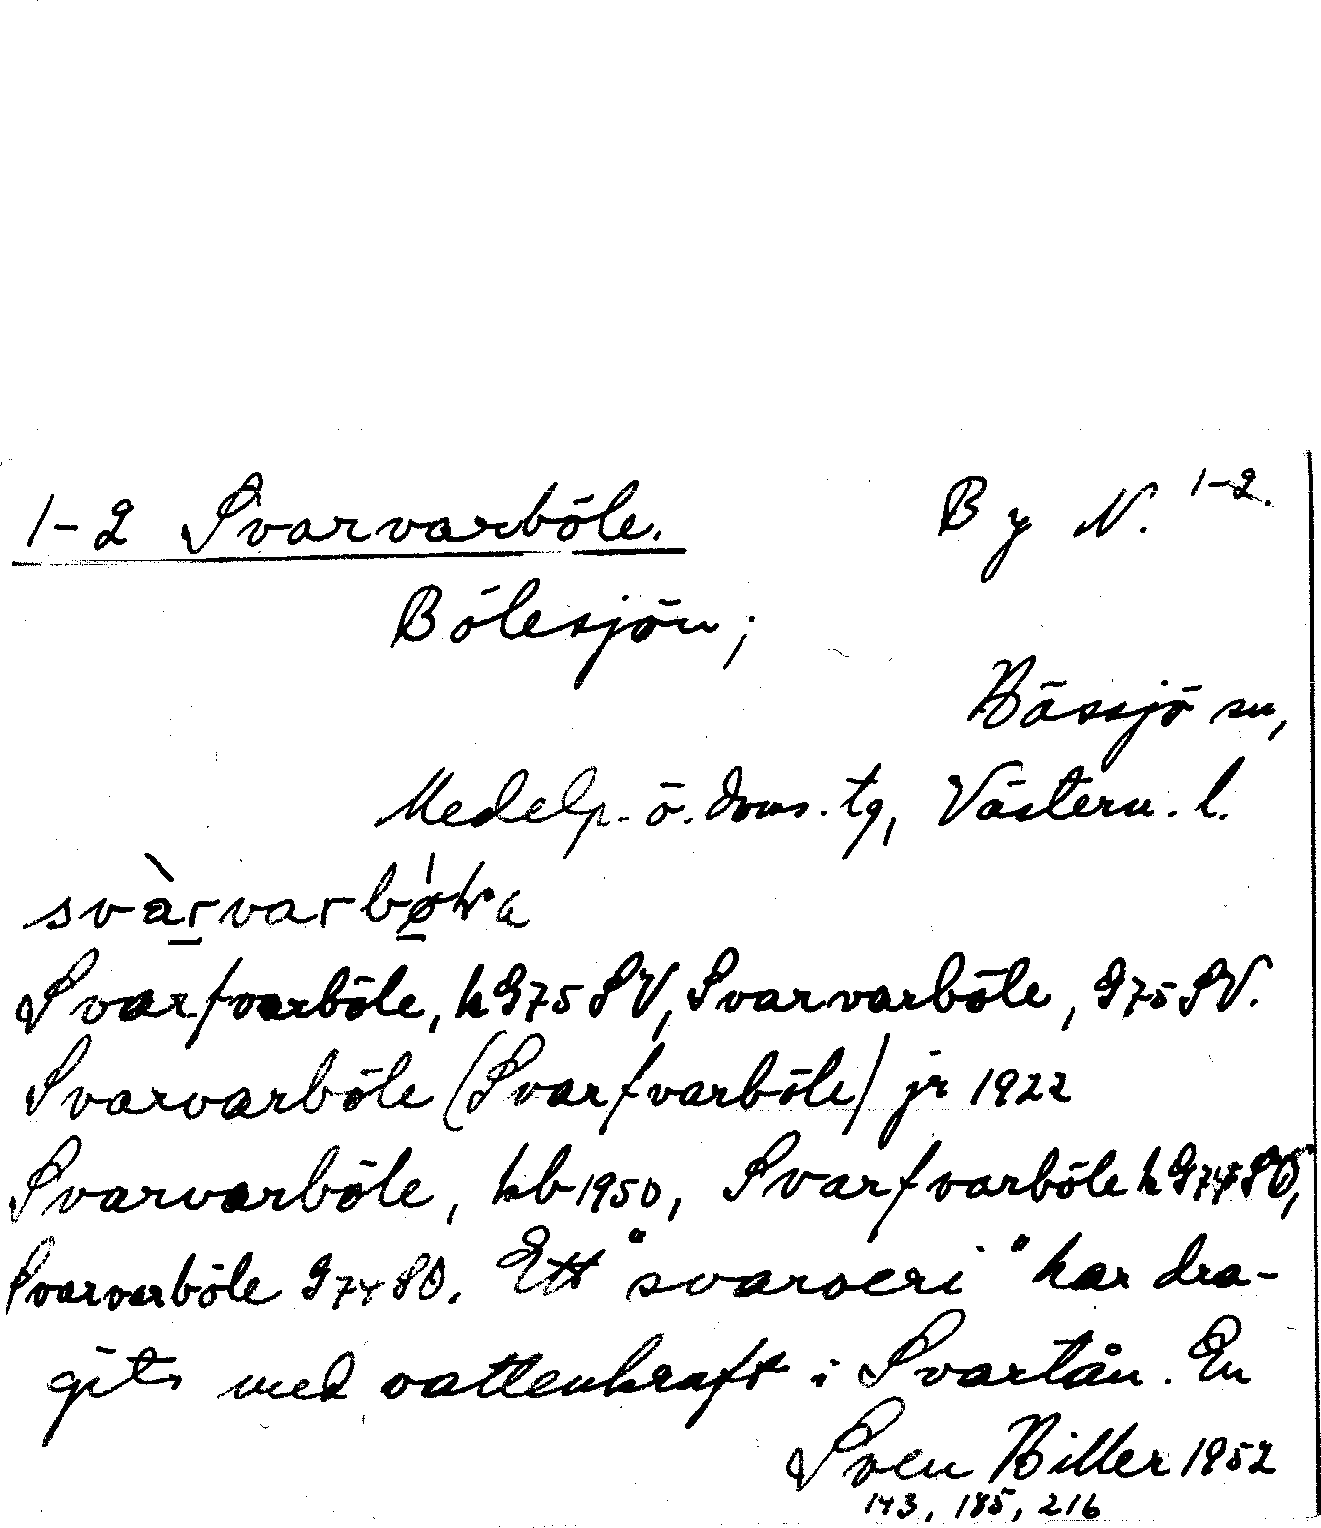 1-2 Svarvarböle. By N. 1-2.
Bölesjön;
Hässjö sn,
Medelp. ö. doms. tg, Västern. l.
Svarfvarböle, h G75 SV, Svarvarböle, G75 SV.
Svarvarböle (Svarfvarböle) jr 1922
Svarvarböle, hb 1950, Svarfvarböle h G74 SO,
Svarvarböle G74 SO. Ett "svarveri" har dra-
gits med vattenkraft i Svartån. En
Sven Hiller 1952
143, 185, 216